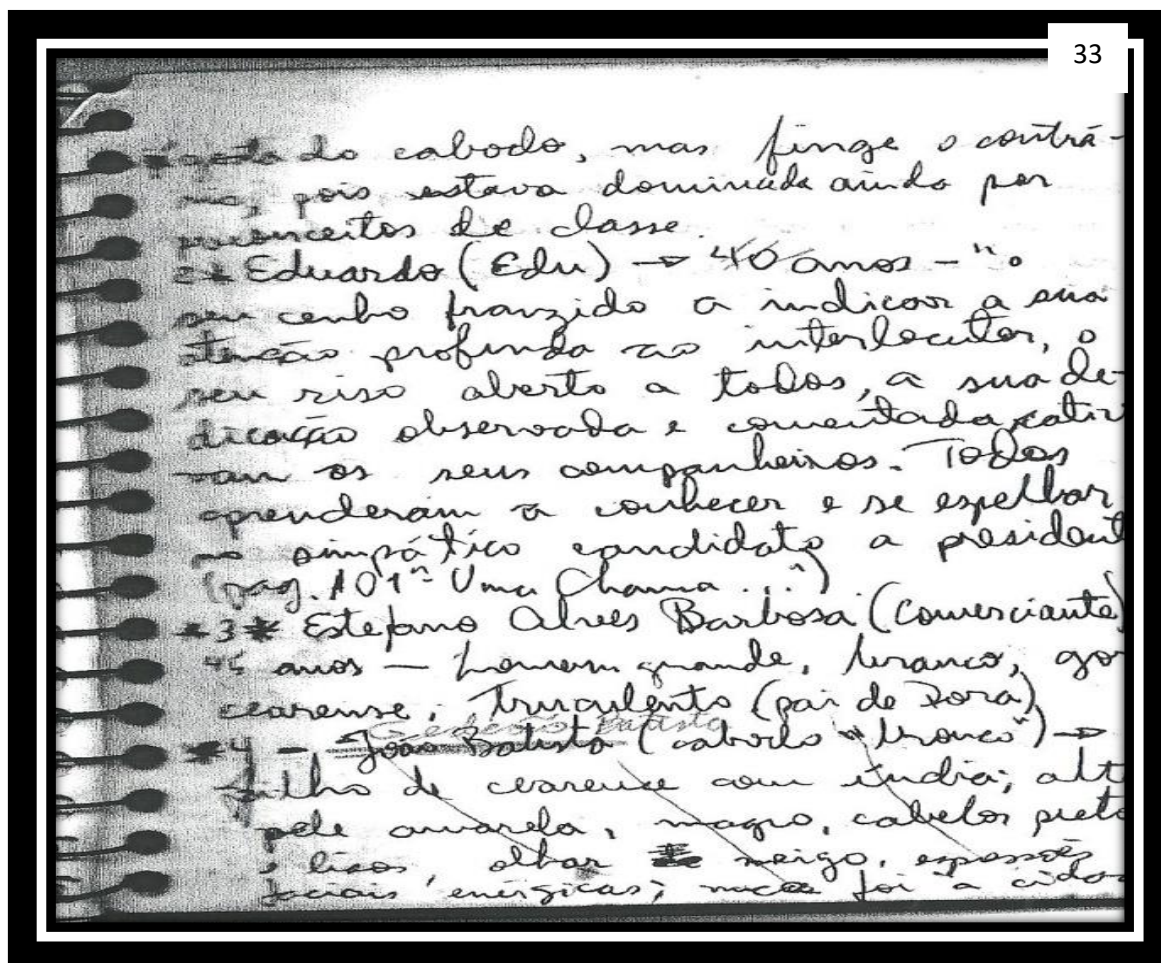 33
gosta do caboclo, mas finge o contrá-
rio, pois estava dominada ainda por
preconceitos de classe.
2* Eduardo (Edu) → 40 anos - "o
seu cenho franzido a indicar a sua
atenção profunda ao interlocutor, o
seu riso aberto a todos, a sua de-
dicação observada e comentada, cativ
ram os seus companheiros. Todos
aprenderam a conhecer e se espelhar
no simpático candidato a president
(pag. 101 "Uma Chama...")
*3* Estefano Alves Barbosa (comerciante)
45 anos — homem grande, branco, gor
cearense, truculento (pai de Dora)
Gedeão Batista
*4 - João Batista (caboclo "branco") →
filho de cearense com índia; alt
pele amarela, magro, cabelos preto
e lisos, olhar meigo, expressões
faciais enérgicas; nunca foi à cidad